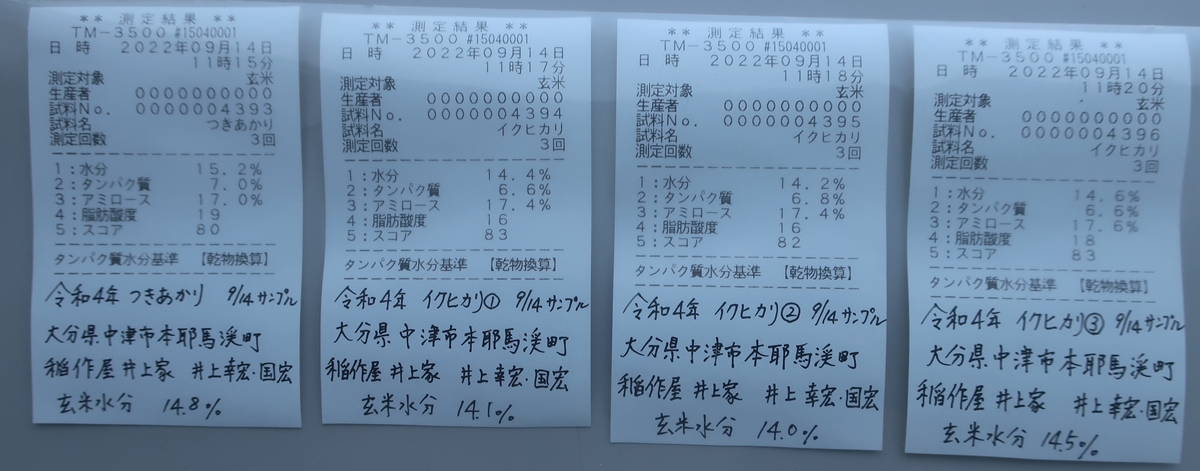 ** 測定結果 **
TM-3500 #15040001
日 時 2022年09月14日
11時15分
測定対象 玄米
生産者 0000000000
試料No. 0000004393
試料名 つきあかり
測定回数 3回
1:水分 15.2%
2:タンパク質 7.0%
3:アミロース 17.0%
4:脂肪酸度 19
5:スコア 80
タンパク質水分基準 【乾物換算】
令和4年 つきあかり 9/14サンプル
大分県中津市本耶馬渓町
稲作屋 井上家 井上幸宏・国宏
玄米水分 14.8%
** 測定結果 **
TM-3500 #15040001
日 時 2022年09月14日
11時17分
測定対象 玄米
生産者 0000000000
試料No. 0000004394
試料名 イクヒカリ
測定回数 3回
1:水分 14.4%
2:タンパク質 6.6%
3:アミロース 17.4%
4:脂肪酸度 16
5:スコア 83
タンパク質水分基準 【乾物換算】
令和4年 イクヒカリ① 9/14サンプル
大分県中津市本耶馬渓町
稲作屋 井上家 井上幸宏・国宏
玄米水分 14.1%
** 測定結果 **
TM-3500 #15040001
日 時 2022年09月14日
11時18分
測定対象 玄米
生産者 0000000000
試料No. 0000004395
試料名 イクヒカリ
測定回数 3回
1:水分 14.2%
2:タンパク質 6.8%
3:アミロース 17.4%
4:脂肪酸度 16
5:スコア 82
タンパク質水分基準 【乾物換算】
令和4年 イクヒカリ② 9/14サンプル
大分県中津市本耶馬渓町
稲作屋 井上家 井上幸宏・国宏
玄米水分 14.0%
** 測定結果 **
TM-3500 #15040001
日 時 2022年09月14日
11時20分
測定対象 玄米
生産者 0000000000
試料No. 0000004396
試料名 イクヒカリ
測定回数 3回
1:水分 14.6%
2:タンパク質 6.6%
3:アミロース 17.6%
4:脂肪酸度 18
5:スコア 83
タンパク質水分基準 【乾物換算】
令和4年 イクヒカリ③ 9/14サンプル
大分県中津市本耶馬渓町
稲作屋 井上家 井上幸宏・国宏
玄米水分 14.5%